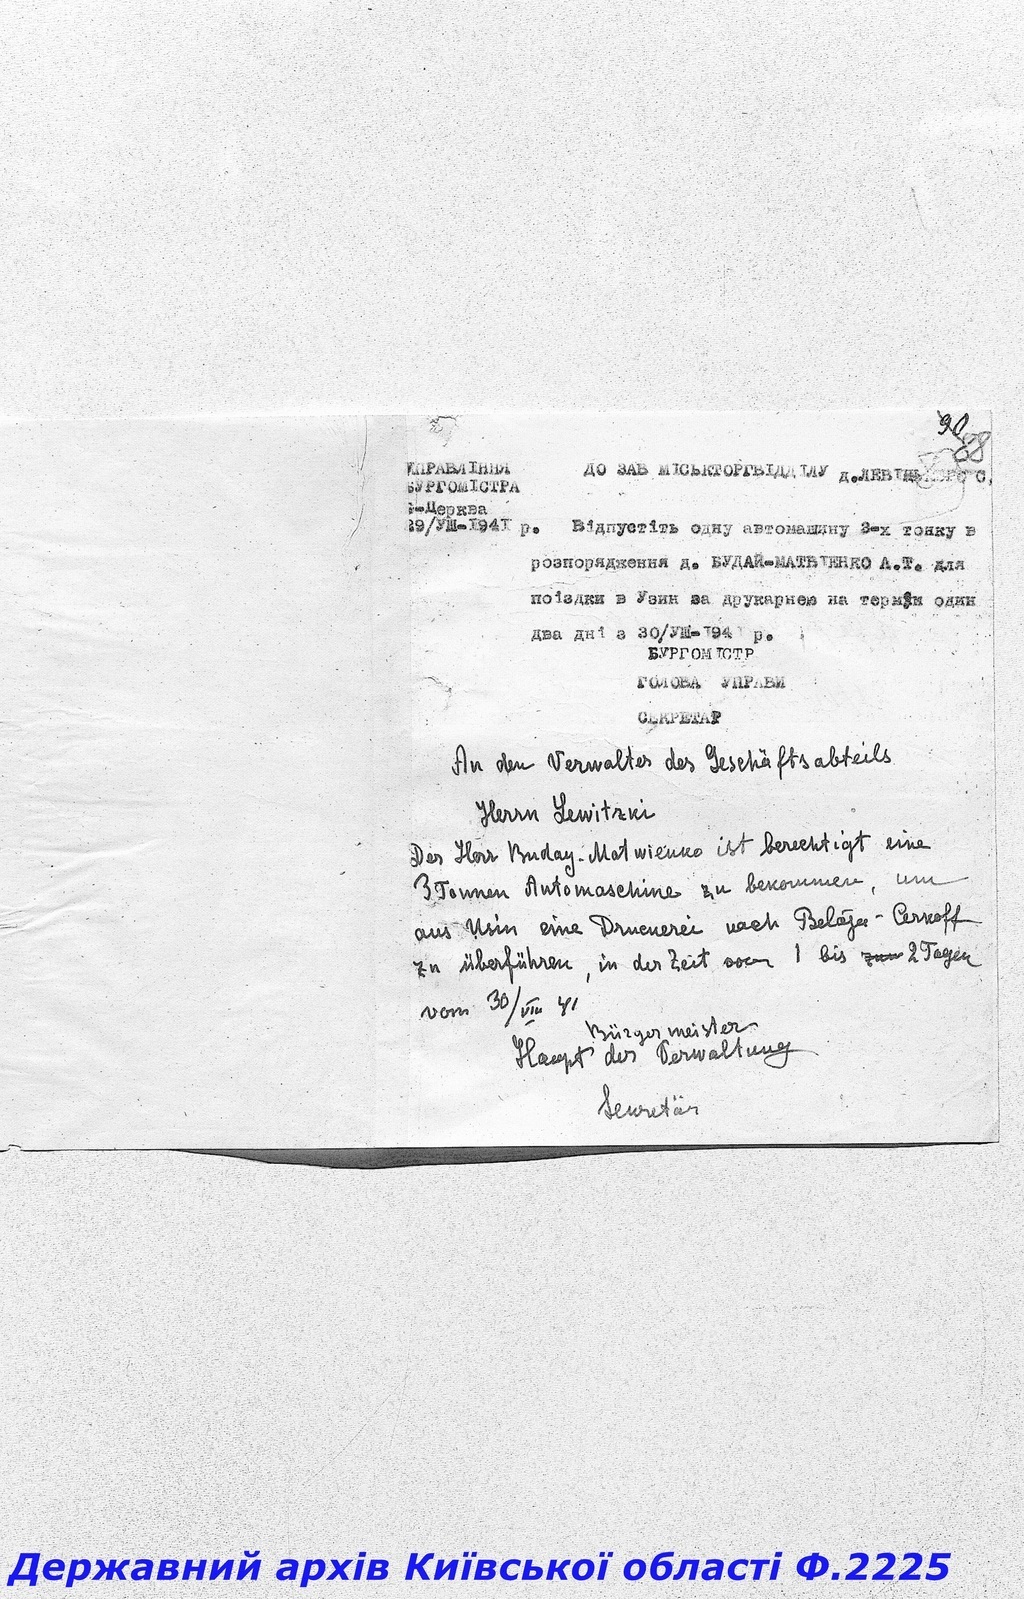 90
88
УПРАВЛІННЯ
БУРГОМІСТРА
Б-Церква
29/УШ-1941 р.
ДО ЗАВ МІСЬКТОРГВІДДІЛУ д.ЛЕВІЦЬКОГО С.
Відпустіть одну автомашину 3-х тонку в
розпорядження д. БУДАЙ-МАТВІЕНКО А.Т. для
поїздки в Узин за друкарнею на термін один
два дні з 30/УШ-194 р.
БУРГОМІСТР
ГОЛОВА УПРАВИ
СЕКРЕТАР
An den Verwalter des Geschäftsabteils
Herrn Lewitzki
Der Herr Buday-Matwienko ist berechtigt eine
3 Tonnen Automaschine zu bekommen, um
aus Usin eine Druckerei nach Belaja-Cerkoff
zu überführen, in der Zeit von 1 bis zum 2 Tagen
vom 30/VIII 41
Bürgermeister
Haupt der Verwaltung
Sekretär
Державний архів Київської області Ф.2225